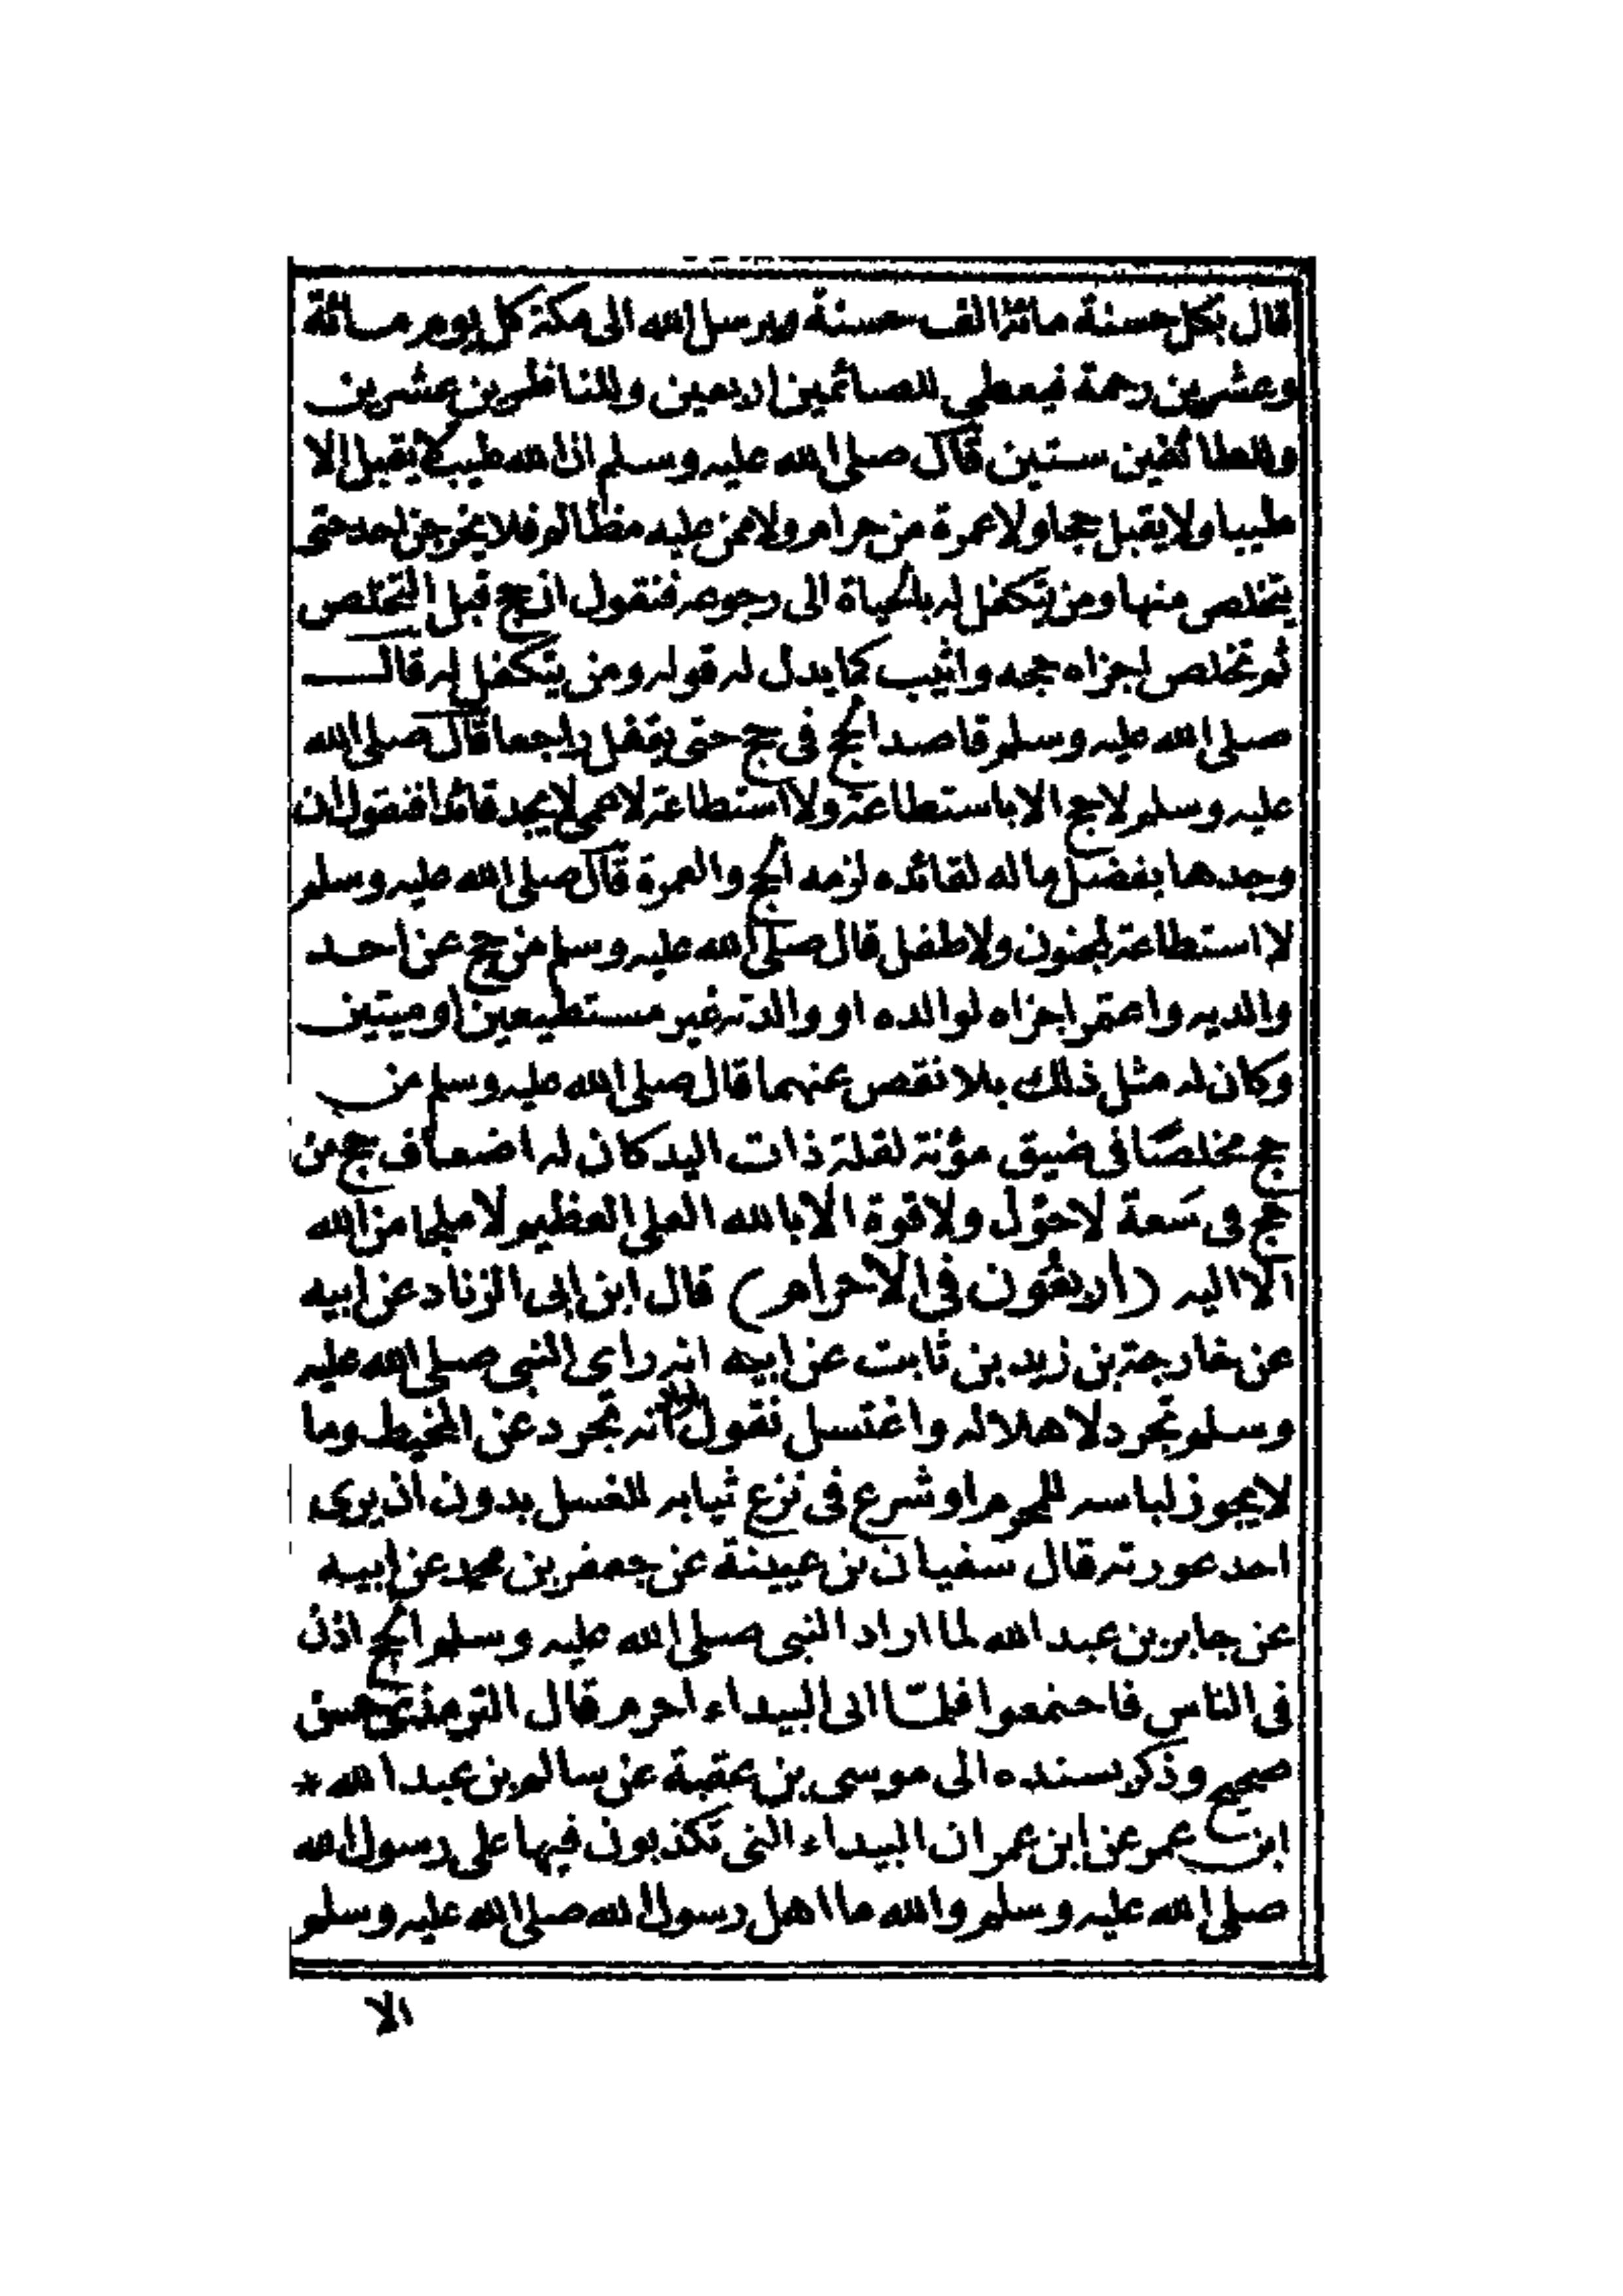 قال بكل حسنة مائة الف حسنة ويرسل الله الى مكة كل يوم مائة
وعشرين رحمة فيعطي للصائمين اربعين وللناظرين عشرين
وللطائفين ستين قال صلى الله عليه وسلم ان الله طيب لا يقبل الا
طيبا ولا يقبل حجا ولا عمرة من حرام ولا ممن عليه مظالم فلا يخرجن احد حتى
يتخلص منها ومن يتكفل له بالحياة الى رجوعه فنقول ان حج قبل التخلص
ثم تخلص اجزاه حجه واثيب كما يدل له قوله ومن يتكفل له قال
صلى الله عليه وسلم قاصد الحج في حج حتى يقفل راجعا قال صلى الله
عليه وسلم لا حج الا باستطاعة ولا استطاعة لاعمى لا يجد قائدا فنقول ان
وجدها بفضل ماله لقائده لزمه الحج والعمرة قال صلى الله عليه وسلم
لا استطاعة لمجنون ولا طفل قال صلى الله عليه وسلم من حج عن احد
والديه واعتمر اجزاه لوالده او والدته غير مستطيعين او ميتين
وكان له مثل ذلك بلا نقص عنهما قال صلى الله عليه وسلم من
حج مخلصًا في ضيق مؤنة لقلة ذات اليد كان له اضعاف حج من
حج في سَعة لا حول ولا قوة الا بالله العلي العظيم لا ملجا من الله
الا اليه (اربعون في الاحرام) قال ابن ابى الزناد عن ابيه
عن خارجة بن زيد بن ثابت عن ابيه انه راى النبي صلى الله عليه
وسلم تجرد لاهلاله واغتسل نقول انه تجرد عن المخيط وما
لا يجوز لباسه للمحرم او شرع في نزع ثيابه للغسل بدون ان يرى
احد عورته قال سفيان بن عيينة عن جعفر بن محمد عن ابيه
عن جابر بن عبد الله لما اراد النبي صلى الله عليه وسلم الحج اذن
في الناس فاجتمعوا فلمّا اتى البيداء احرم قال الترمذي حسن
صحيح وذكر بسنده الى موسى بن عقبة عن سالم بن عبد الله *
ابن عمر عن ابن عمر ان البيداء التي تكذبون فيها على رسول الله
صلى الله عليه وسلم والله ما اهل رسول الله صلى الله عليه وسلم
الا